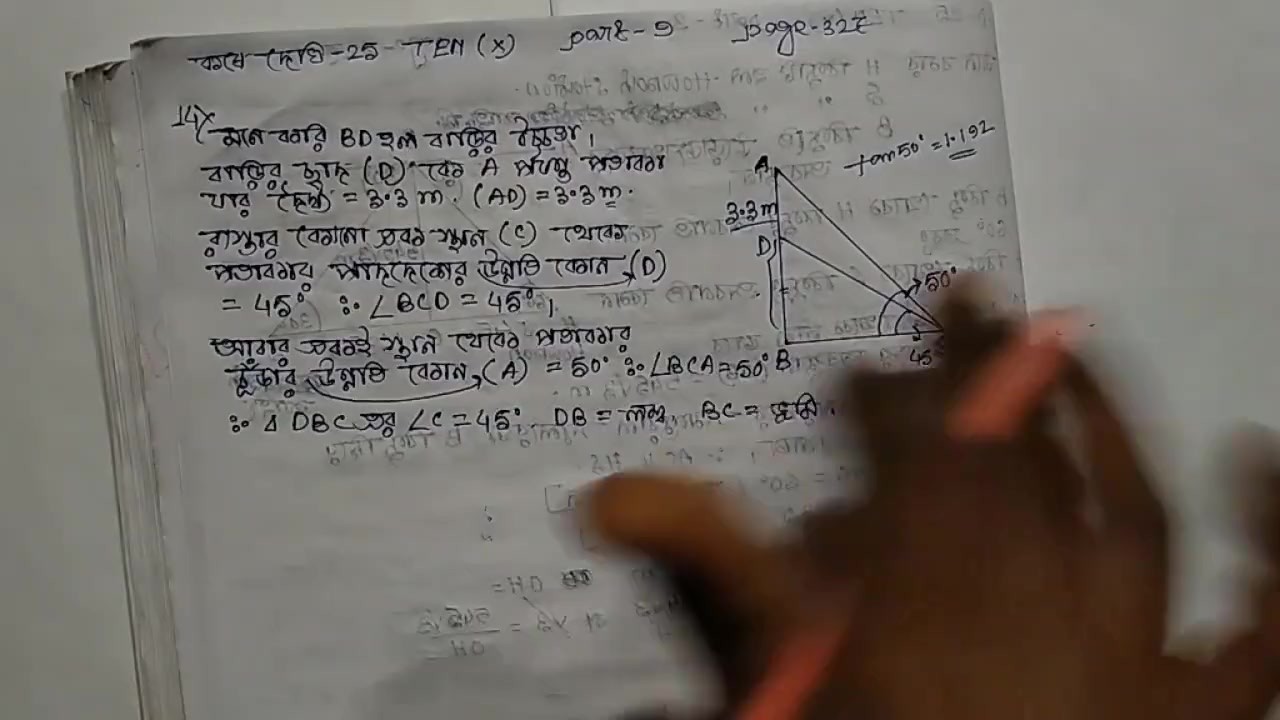 কষে দেখি -25 - TEN (X) part - 9 page - 327
14) মনে করি BD হল বাড়ির উচ্চতা।
বাড়ির ছাদ (D) থেকে A পর্যন্ত পতাকা
যার দৈর্ঘ্য = 3.3 m. (AD) = 3.3 m.
রাস্তার কোনো এক স্থান (C) থেকে
পতাকার পাদদেশের উন্নতি কোন (D)
= 45° ∴ ∠BCD = 45°।
আবার একই স্থান থেকে পতাকার
চূড়ার উন্নতি কোন (A) = 50° ∴ ∠BCA = 50°
∴ Δ DBC এর ∠C = 45°. DB = লম্ব BC = ভূমি.
tan50° = 1.192
A
3.3 m
D
50°
45
B